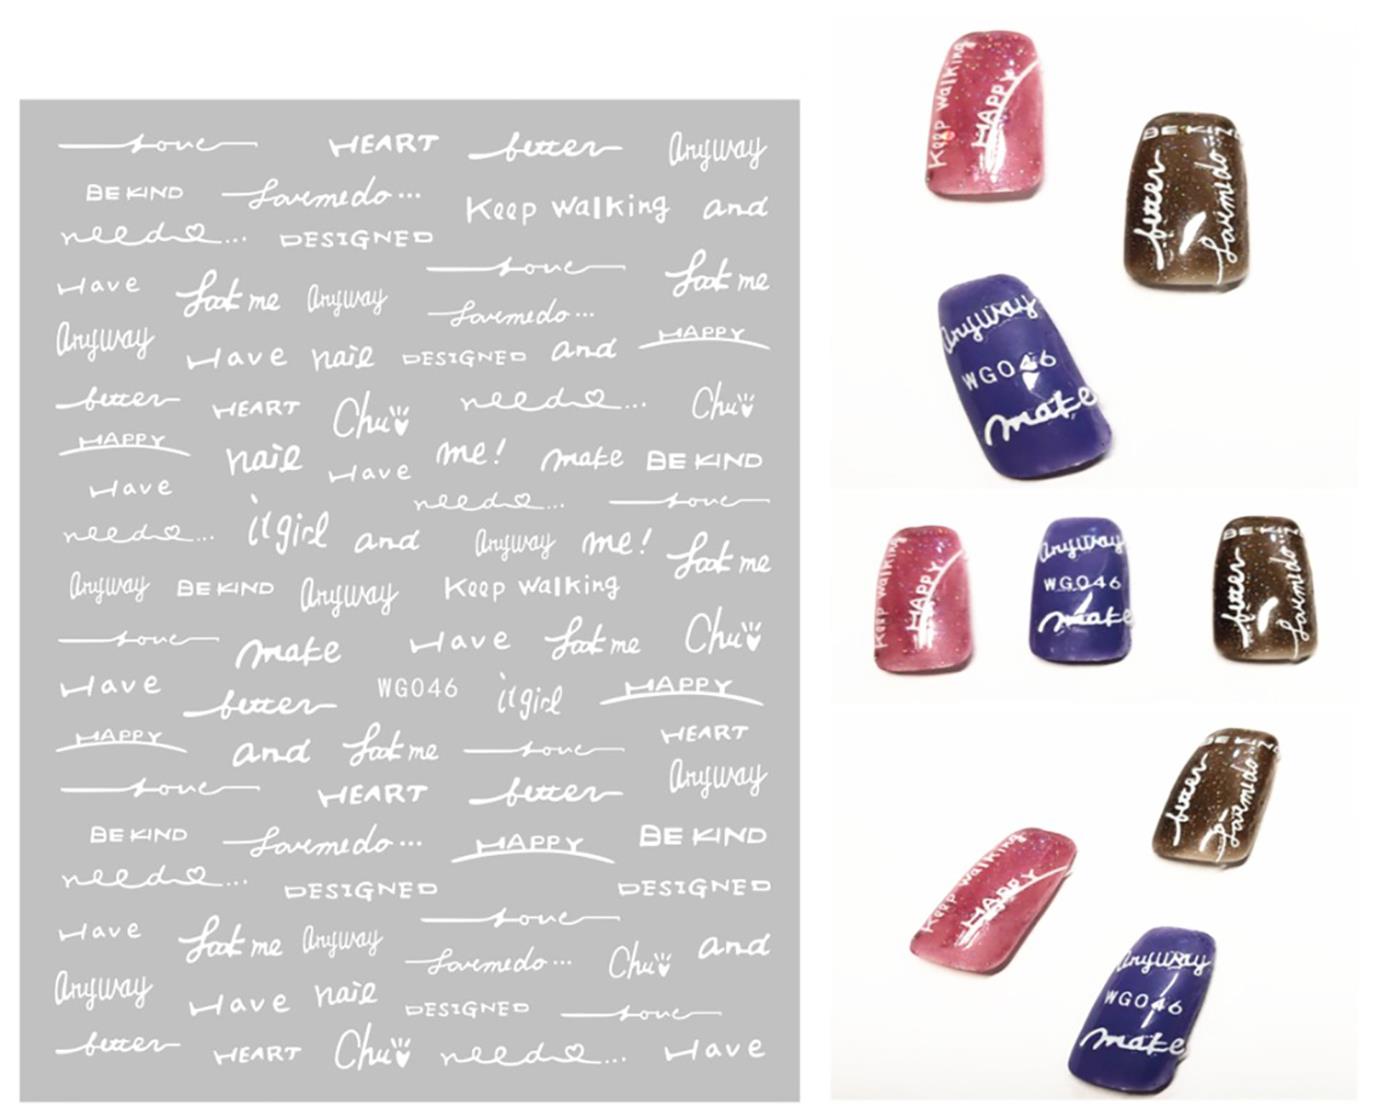 Love HEART better Anyway
BE KIND Lovemedo... Keep walking and
need... DESIGNED
Love
Have Look me Anyway Look me
Lovemedo...
Anyway Have nail DESIGNED and HAPPY
better HEART Chu need... Chu
HAPPY nail Have me! make BE KIND
Have need... Love
need... it girl and Anyway me! Look me
Anyway BE KIND Anyway Keep walking
Love make Have Look me Chu
Have better WG046 it girl HAPPY
HAPPY and Look me Love HEART
Love HEART better Anyway
BE KIND Lovemedo... HAPPY BE KIND
need... DESIGNED DESIGNED
Love
Have Look me Anyway Lovemedo... Chu and
Anyway Have nail DESIGNED Love
better HEART Chu need... Have
Keep walking
HAPPY
BE KIND
better
Lovemedo
Anyway
WG046
make
Keep walking
HAPPY
Anyway
WG046
make
BE KIND
better
Lovemedo
BE KIND
better
Lovemedo
Keep walking
HAPPY
Anyway
WG046
make